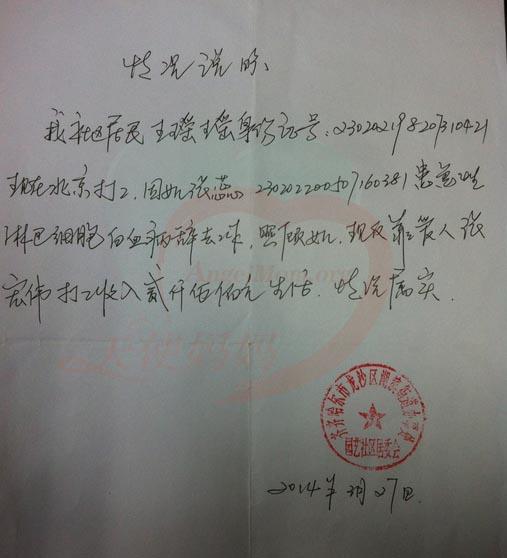 情况说明、
我社区居民王瑩瑩身份证号:230202198207310421
现在北京打工,因女张蕊230202200507160381患急性
淋巴细胞白血病辞去工作,照顾女,现仅靠一人张
宏伟打工收入贰仟伍佰元生活.情况属实.
AngelMom.org
天使妈妈
齐齐哈尔市龙沙区湖滨街道办事处
园艺社区居委会
2014年3月27日.